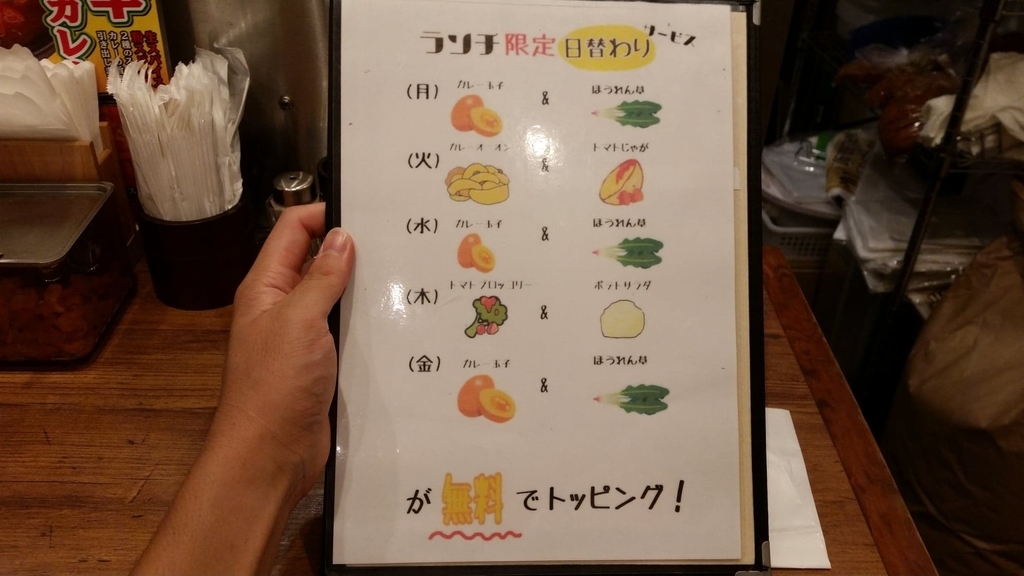 ランチ限定日替わりサービス
(月) カレー玉子 & ほうれん草
(火) カレーオニオン & トマトじゃが
(水) カレー玉子 & ほうれん草
(木) トマトブロッコリー & ポテトサラダ
(金) カレー玉子 & ほうれん草
が無料でトッピング!